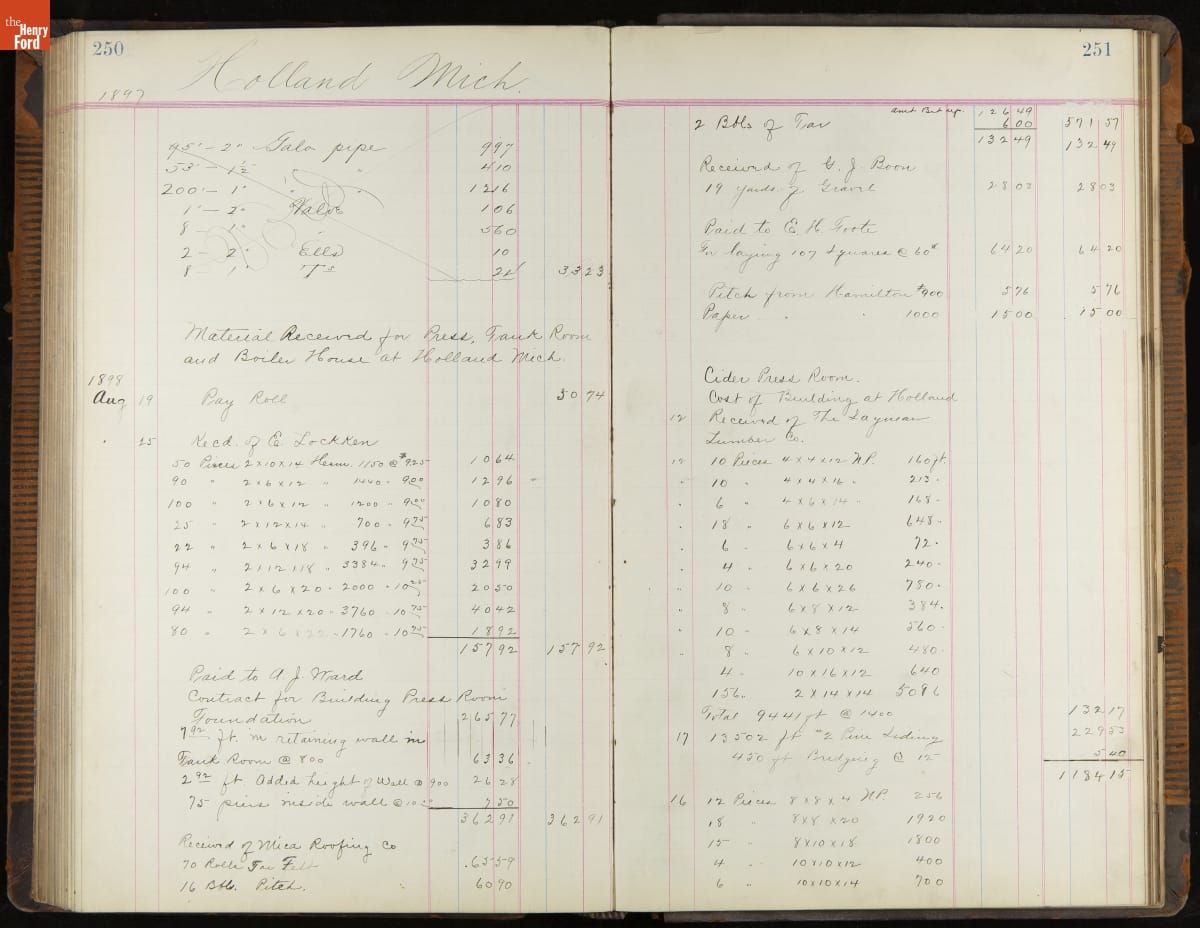 the Henry Ford
250
Holland Mich.
1897
45' - 2" Galv pipe 997
53' - 1½ " " 410
200' - 1" " " 1216
1 - 2" Valve 106
8 - 1" " 560
2 - 2" Ells 10
8 - 1" Ts 24 3323
Material Received for Press, Tank Room
and Boiler House at Holland Mich.
1898
Aug 19 Pay Roll 5074
" 25 Recd. of E. Lockken
50 Pieces 2x10x14 Hem. 1150 @ $9.25 1064
90 " 2x6x12 " 1440 " 900 1296
100 " 2x6x12 " 1200 " 900 1080
25 " 2x12x14 " 700 " 975 683
22 " 2x6x18 " 396 " 975 386
94 " 2x12x18 " 3384 " 975 3299
100 " 2x6x20 " 2000 " 1025 2050
94 " 2x12x20 " 3760 " 1075 4042
80 " 2x6x22 " 1760 " 1075 1892
15792 15792
Paid to A. J. Ward
Contract for Building Press Room
Foundation 26577
792 ft. in retaining wall in
Tank Room @ 800 6336
292 ft Added height of Wall @ 900 2628
75 piers inside wall @ 10¢ 750
36291 36291
Received of Mica Roofing Co
70 Rolls Tar Felt 6559
16 Bbls. Pitch. 6090
251
Amt Brt up. 12649
2 Bbls of Tar 600 57157
13249 13249
Received of G. J. Boon
19 yards of Gravel 2803 2803
Paid to E. H. Foote
For laying 107 Squares @ 60¢ 6420 6420
Pitch from Hamilton $900 576 576
Paper " " 1000 1500 1500
Cider Press Room.
Cost of Building at Holland
12 Received of The
Lumber Co.
12 10 Pieces 4x4x12 N.P. 160 ft.
" 10 " 4x4x16 " 213 "
" 6 " 4x6x14 " 168 "
" 18 " 6x6x12 648 "
" 6 " 6x6x4 72 "
" 4 " 6x6x20 240 "
" 10 " 6x6x26 780 "
" 8 " 6x8x12 384 "
" 10 " 6x8x14 560 "
" 8 " 6x10x12 480 "
4 " 10x16x12 640
156 " 2x14x14 5096
Total 9441 ft @ 1400 13217
17 13502 ft #2 Pine Siding 22953
450 ft Bridging @ 12 540
118415
16 12 Pieces 8x8x4 N.P. 256
18 " 8x8x20 1920
15 " 8x10x18 1800
4 " 10x10x12 400
6 " 10x10x14 700